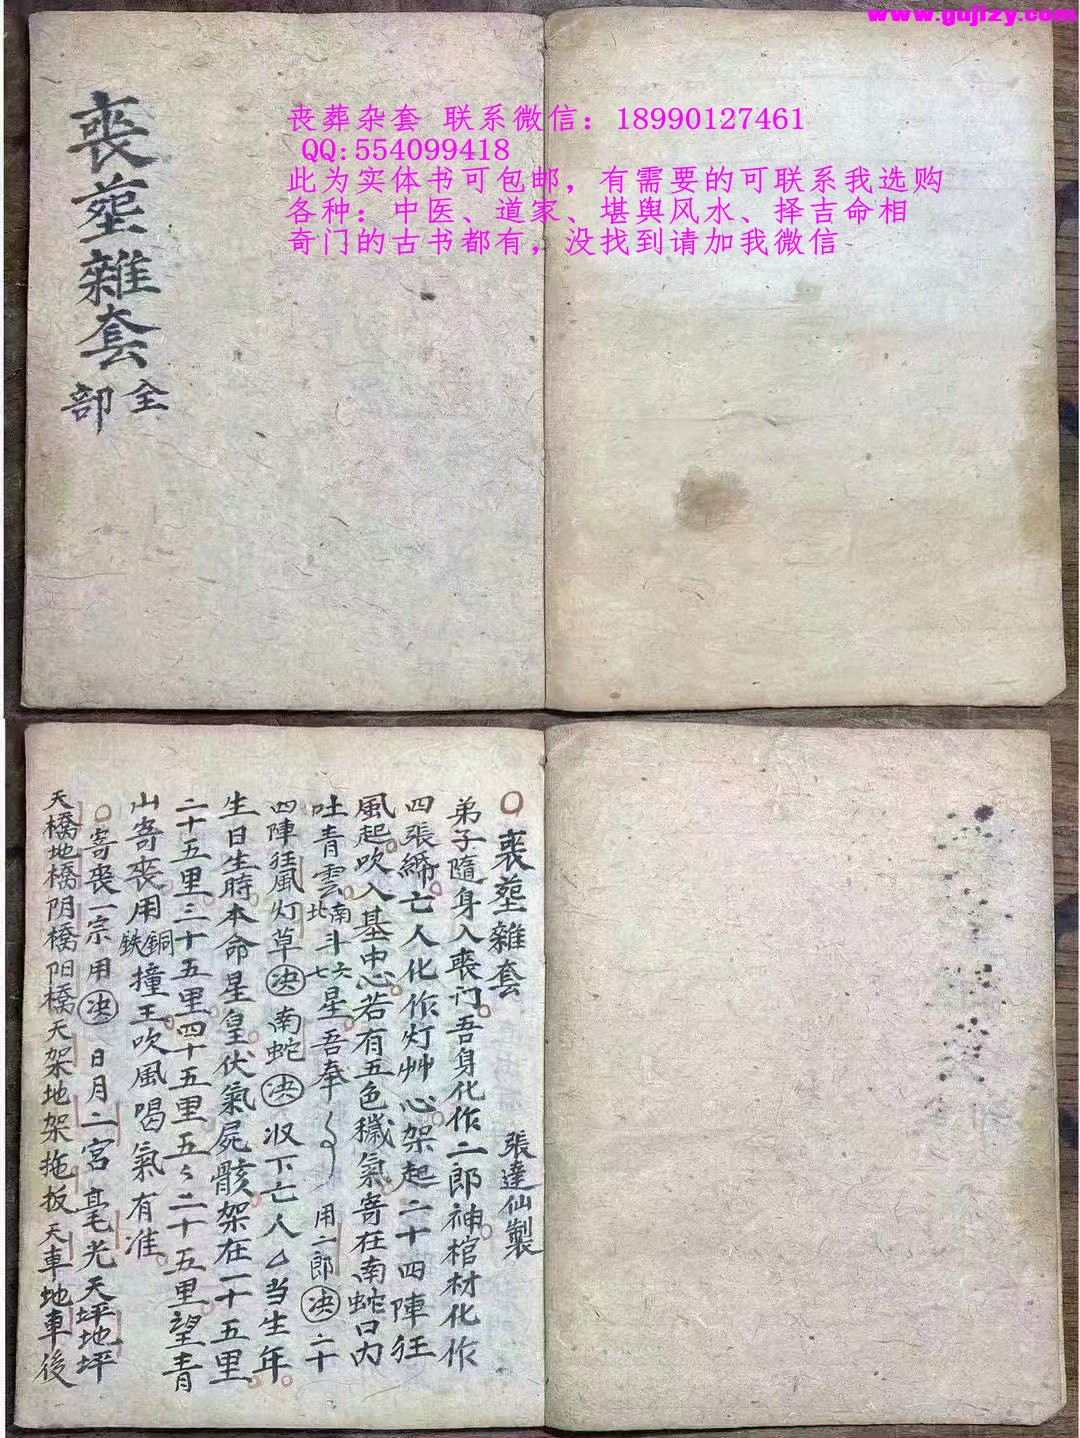 www.gujizy.com
丧葬杂套 联系微信：18990127461
QQ:554099418
此为实体书可包邮，有需要的可联系我选购
各种：中医、道家、堪舆风水、择吉命相
奇门的古书都有，没找到请加我微信
喪塟雜套
全部
喪塟雜套 張達仙製
弟子隨身入喪门吾身化作二郎神棺材化作
四張綿亡人化作灯艸心架起二十四陣狂
風起吹入基中心若有五色穢氣寄在南蛇口内
吐青雲南斗六星北七吾奉 用二郎决二十
四陣狂風灯草决南蛇决収下亡人厶当生年
生日生時本命星皇伏氣屍骸架在一十五里
二十五里三十五里四十五里五〻二十五里望青
山寄喪用銅鉄撞王吹風喝氣有准
寄喪一宗用决日月二宮毫光天坪地坪
天橋地橋阴橋阳橋天架地架拖扳天車地車後